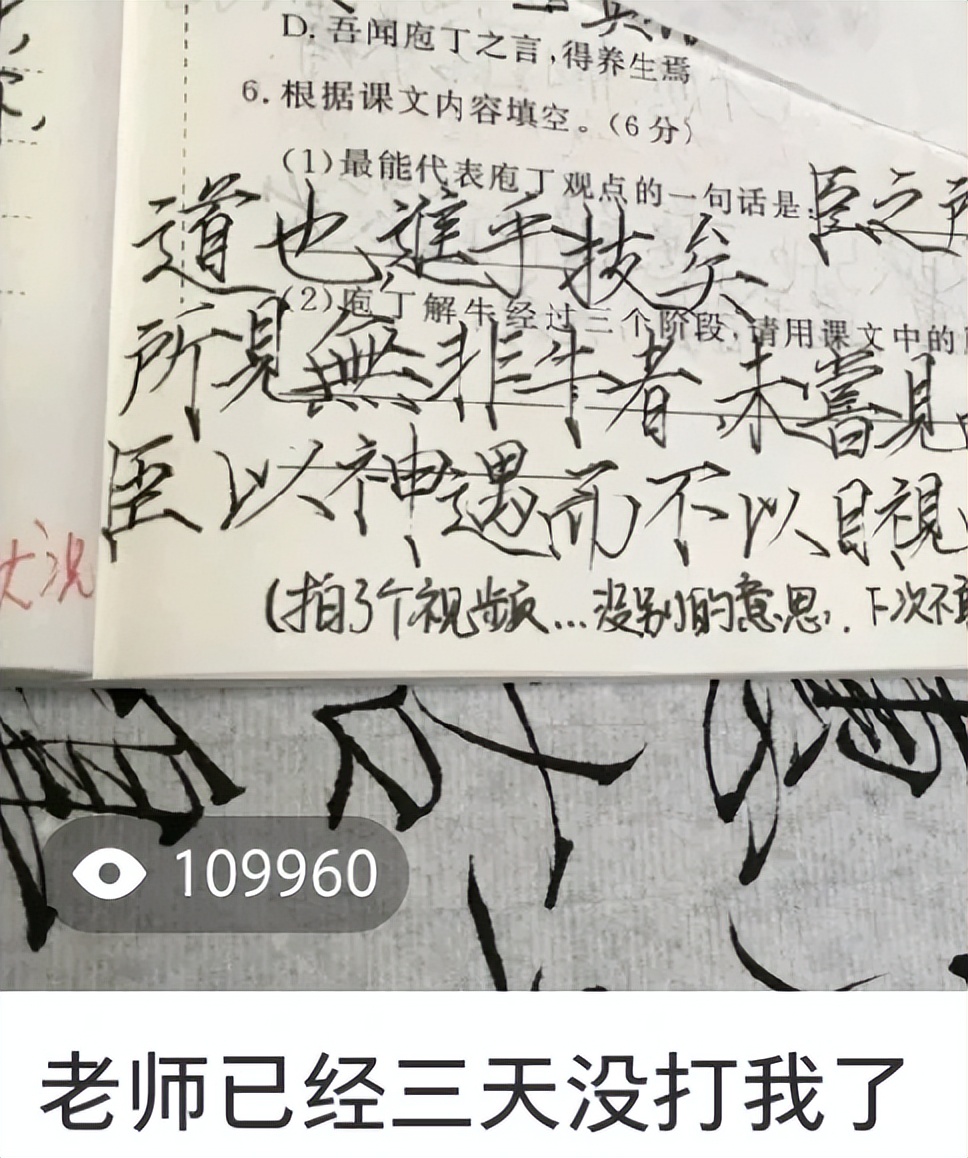 D. 吾闻庖丁之言,得养生焉
6. 根据课文内容填空。(6分)
(1)最能代表庖丁观点的一句话是:臣之所
道也進乎技矣
(2)庖丁解牛经过三个阶段,请用课文中的
所見無非牛者未嘗見
臣以神遇而不以目視
大况
(拍了个视频...没别的意思,下次不敢
109960
老师已经三天没打我了